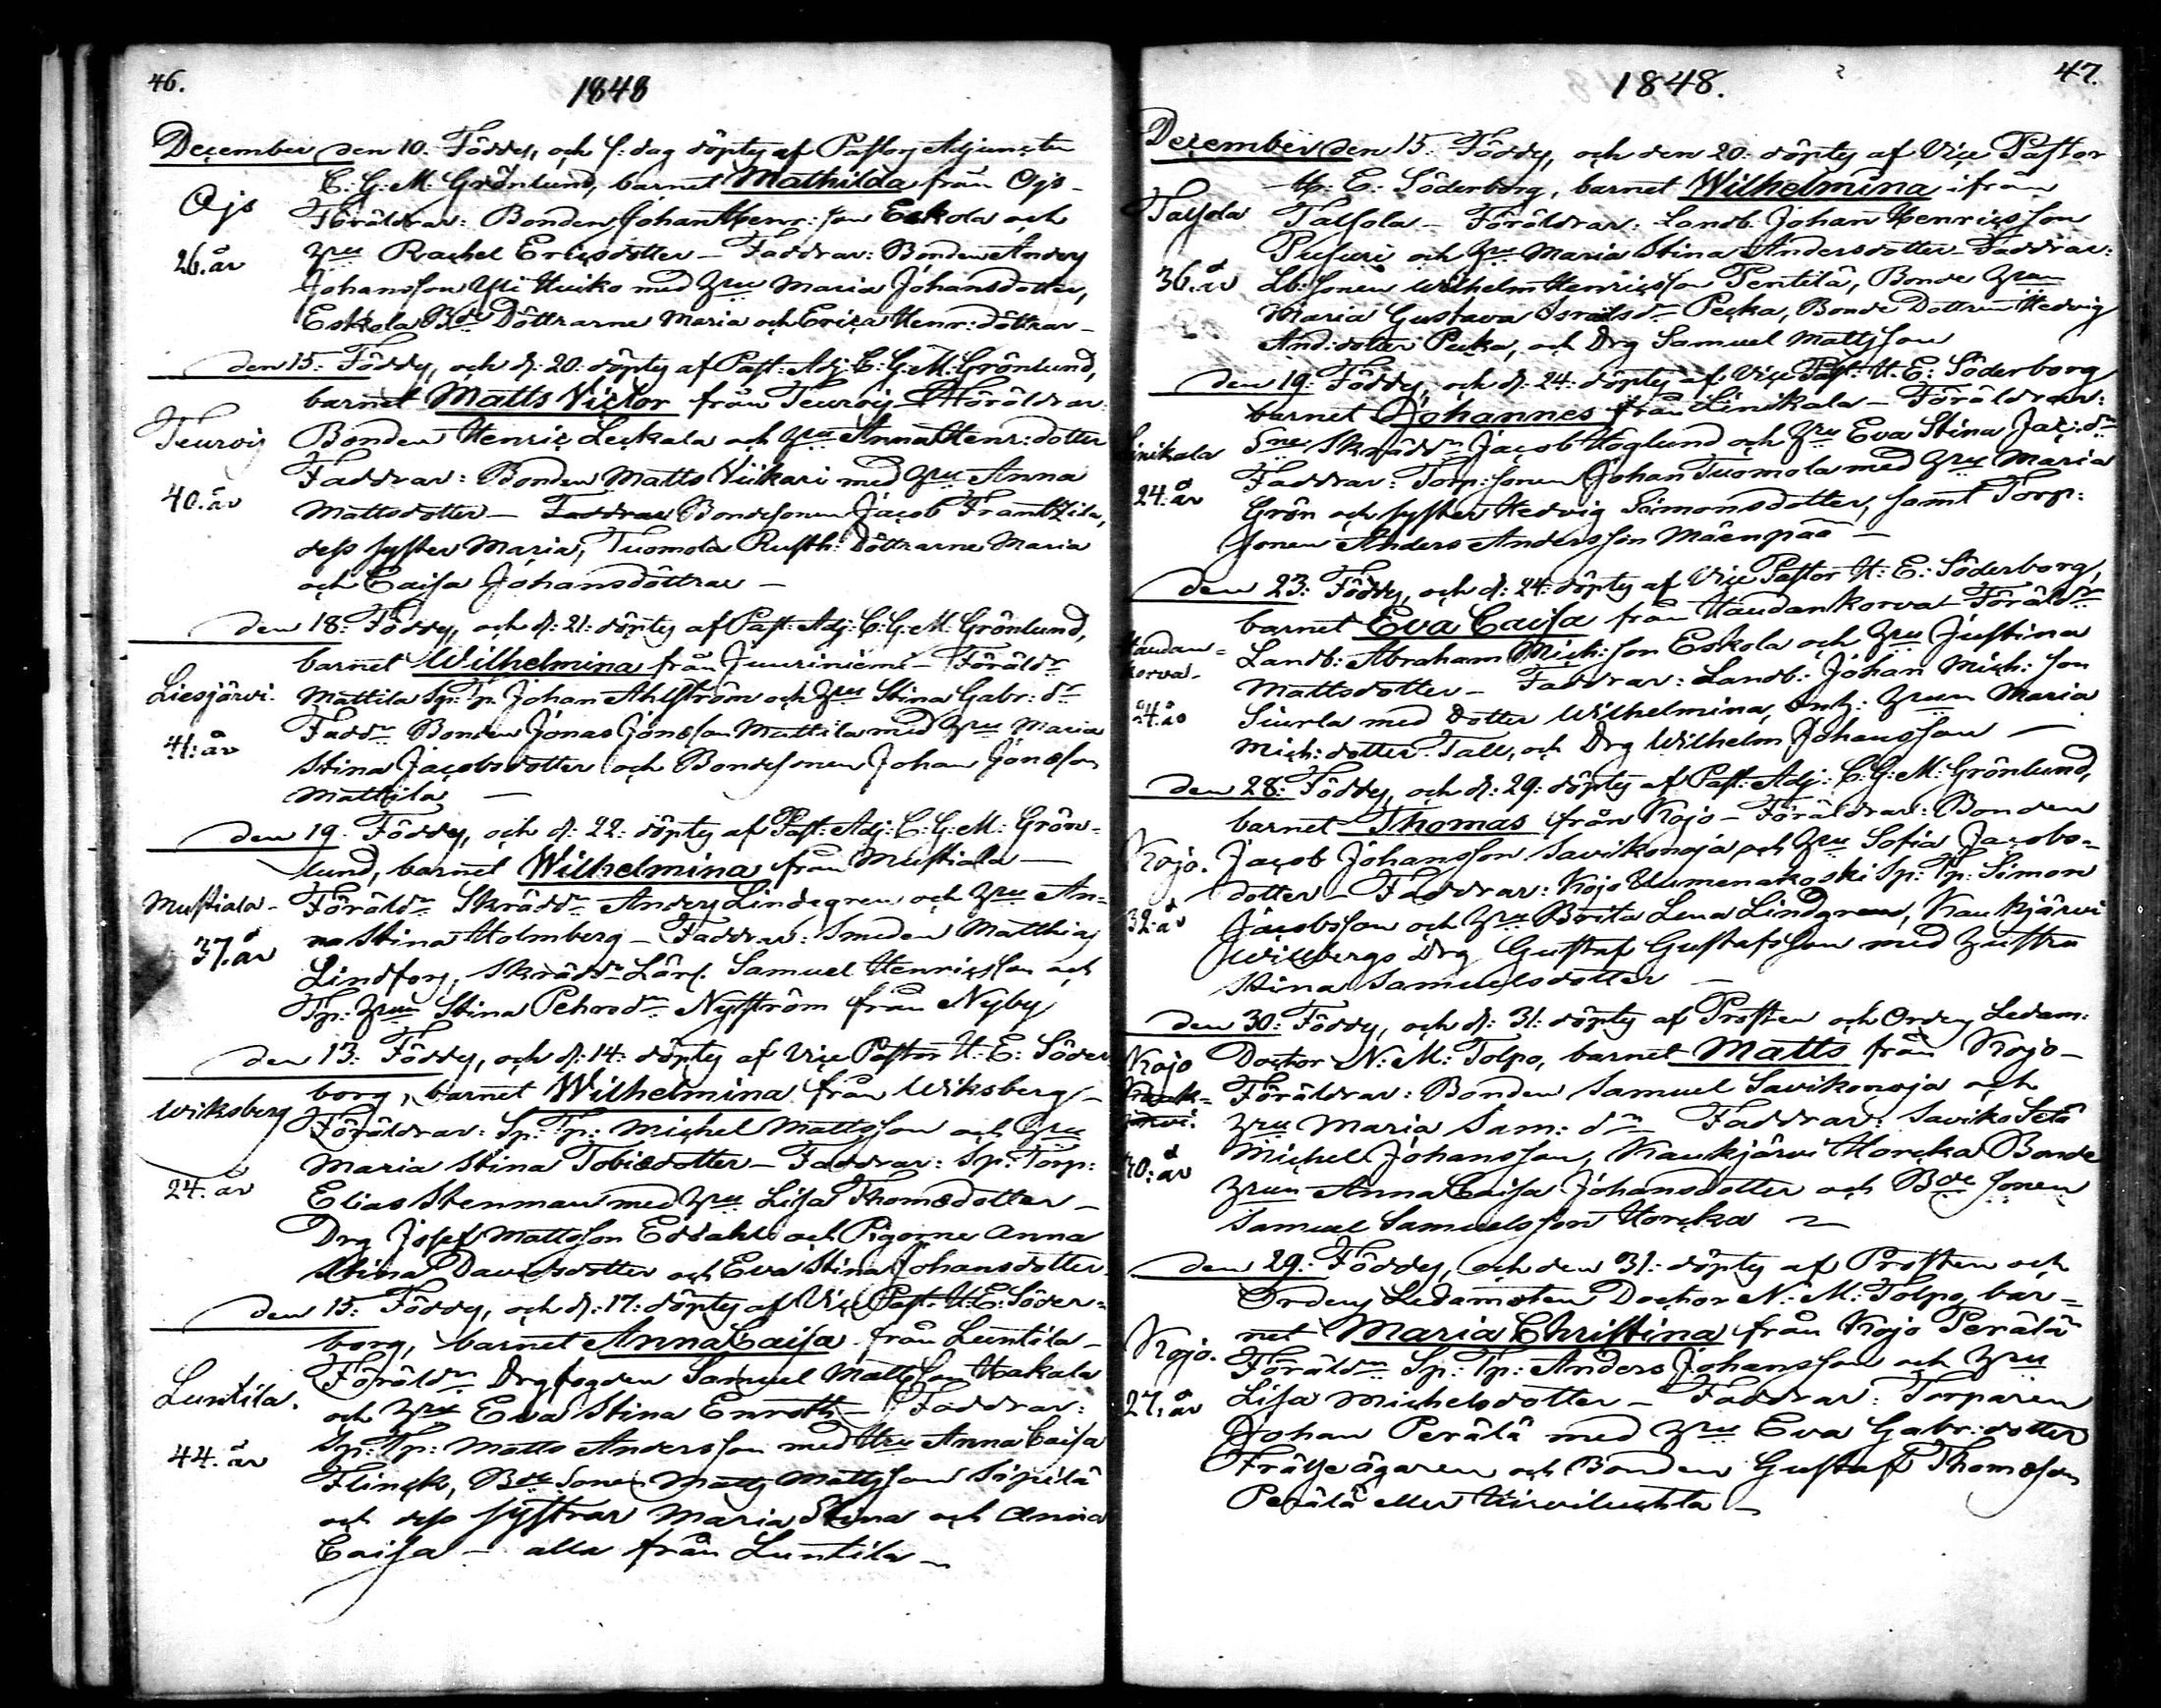 46.
1848
December den 10. Föddes, och s: dag döptes af Pastors Adjuncten
C: G: M: Grönlund, barnet Mathilda från Ojs-
Ojs
Föräldrar: Bonden Johan Henr: son Eskola och
26. år
Hru Rachel Ericsdotter - Faddrar: Bonden Anders
Johansson Yli Huiko med Hru Maria Johansdotter,
Eskola Bde Döttrarne Maria och Erica Henr: döttrar -
den 15. Föddes, och d: 20. döptes af Past: Adj: C: G: M: Grönlund,
barnet Matts Victor från Teurois - Föräldrar:
Teurois
Bonden Henric Leckala och Hru Anna Henr: dotter
Faddrar: Bonden Matts Viikari med Hru Anna
40. år
Mattsdotter - Faddrar Bondesonen Jacob Franttzila,
dess syster Maria, Tuomola Rusth: Döttrarne Maria
och Caisa Johansdöttrar -
den 18: Föddes, och d: 21: döptes af Past: Adj: C: G: M: Grönlund,
barnet Wilhelmina från Juuriniemi - Föräldr
Liesjärvi.
Mattila Sp: Tp. Johan Ahlström och Hru Stina Gabr: dr
41: år
Faddr Bonden Jonas Jonsson Mattila med Hru Maria
Stina Jacobsdotter och Bondesonen Johan Jonsson
Mattila -
den 19. Föddes, och d: 22: döptes af Past: Adj: C: G: M: Grön-
lund, barnet Wilhelmina från Mustiala -
Mustiala -
Föräldr Skrädd Anders Lindegren och Hru An-
37. år
na Stina Holmberg - Faddrar: Smeden Matthias
Lindfors, Skrädd Lärl. Samuel Henricsson och
Tp: Hrun Stina Pehrsdr Nyström från Nyby
den 13: Föddes, och d: 14: döptes af Vice Pastor H: E: Söder
borg, barnet Wilhelmina från Wiksberg -
Wiksberg
Föräldrar: Sp: Tp: Michel Mattsson och Hru
Maria Stina Tobiædotter - Faddrar: Sp: Torp:
24. år
Elias Stenman med Hru Lisa Thomædotter -
Drg Josef Mattsson Eddahl och Pigorne Anna
Stina Davidsdotter och Eva Stina Johansdotter
den 15: Föddes, och d: 17: döptes af Vice Past: H: E: Söder-
borg, barnet Anna Caisa från Luntila -
Luntila.
Föräldr Drgfogden Samuel Mattsson Hakala
och Hru Eva Stina Enroth - Faddrar:
44. år
Sp: Tp: Matts Andersson med Hru Anna Caisa
Flinck, Bde Sonen Matts Mattsson Sipilä
och dess systrar Maria Stina och Anna
Caisa - alla från Luntila -
47.
1848.
December den 15: Föddes, och den 20: döptes af Vice Pastor
H: E: Söderborg, barnet Wilhelmina ifrån
Talsola
Talsola - Föräldrar: Landb. Johan Henricsson
Pusuri och Hru Maria Stina Andersdotter - Faddrar:
36. år
Lb: Sonen Wilhelm Henricsson Pentilä, Bonde Hrun
Maria Gustava Israelsdr Pecka, Bonde Dottren Hedvig
And: dotter Pecka, och Drg Samuel Mattsson
den 19: Föddes, och d: 24: döptes af Vice Past: H: E: Söderborg
barnet Johannes från Linikala - Föräldrar:
inikala
Sne Skrädd Jacob Höglund och Hru Eva Stina Jac: dr
24: år
Faddrar: Torp: sonen Johan Tuomola med Hru Maria
Grön och syster Hedvig Simonsdotter, samt Torp:
sonen Anders Andersson Mäenpää -
den 23: Föddes, och d: 24: döptes af Vice Pastor H: E: Söderborg,
barnet Eva Caisa från Haudankorva - Föräldr
Haudan-
korva -
Landb: Abraham Mich: son Eskola och Hru Justina
Mattsdotter - Faddrar: Landb: Johan Mich: son
24. år
Siurla med dotter Wilhelmina, Enk: Hrun Maria
Mich: dotter Tall, och Drg Wilhelm Johansson -
den 28: Föddes, och d: 29: döptes af Past: Adj: C: G: M: Grönlund,
barnet Thomas från Kojo - Föräldrar: Bonden
Kojo.
Jacob Johansson Savikonoja och Hru Sofia Jacobs-
dotter - Faddrar: Kojo Humenakoski Sp: Tp: Simon
32: år
Jacobsson och Hru Brita Lena Lindgren, Kaukjärvi
Willbergs Drg Gustaf Gustafsson med Hustru
Stina Samuelsdotter -
den 30: Föddes, och d: 31: döptes af Prosten och Ordens Ledam:
Kojo
Doctor N: M: Tolpo, barnet Matts från Kojo -
Kauk-
järvi.
Föräldrar: Bonden Samuel Savikonoja och
Hru Maria Sam: dr Faddrar: Saviko Setä
40: år
Michel Johansson, Kaukjärvi Horcka Bonde
Hrun Anna Caisa Johansdotter och Bde Sonen
Samuel Samuelsson Horcka -
den 29: Föddes, och den 31: döptes af Prosten och
Ordens Ledamoten Doctor N: M: Tolpo, bar-
net Maria Christina från Kojo Perälä
Kojo.
Föräldr Sp: Tp: Anders Johansson och Hru
27. år
Lisa Michelsdotter - Faddrar: Torparen
Johan Perälä med Hru Eva Gabr: dotter
Frälse ägaren och Bonden Gustaf Thomæson
Perälä eller